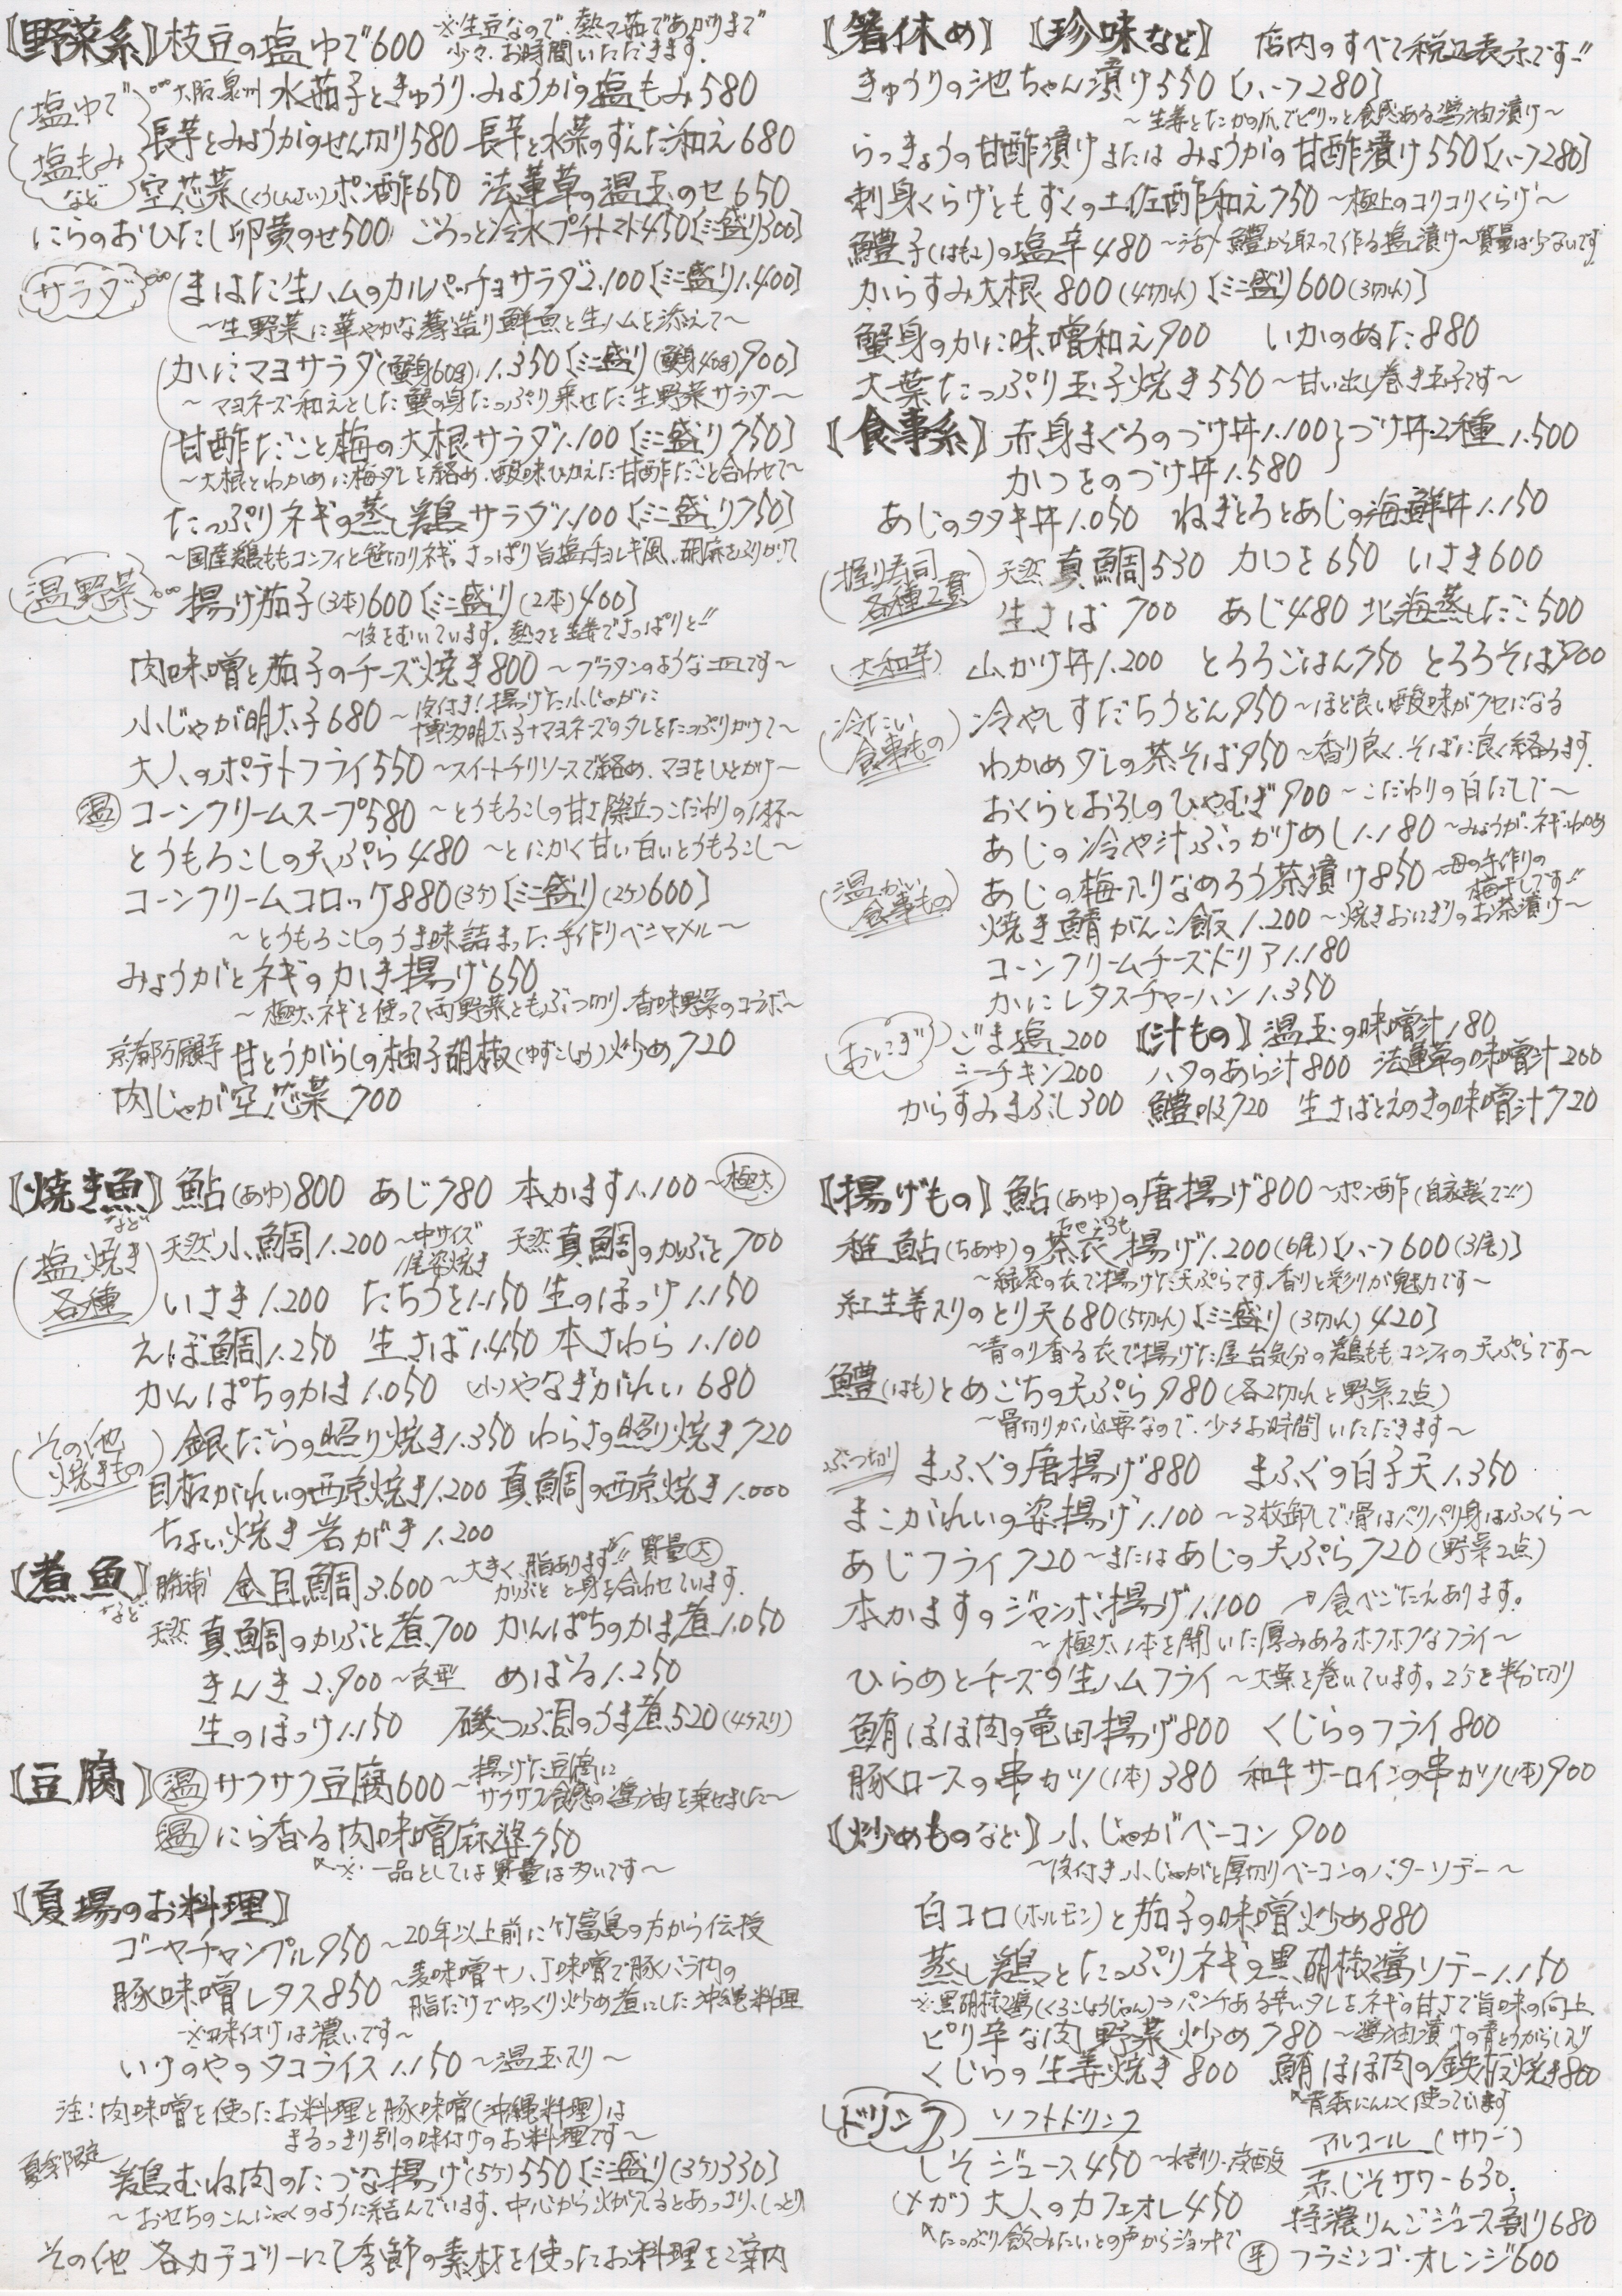 【野菜系】枝豆の塩ゆで600 ※生豆なので、熱々茹であがりまで
少々、お時間いただきます。
塩ゆで 塩もみ など
大阪泉州 水茄子ときゅうり・みょうがの塩もみ580
長芋とみょうがのせん切り580 長芋と水菜のずんだ和え680
空芯菜(くうしんさい)ポン酢650 法蓮草の温玉のせ650
にらのおひたし卵黄のせ500 ごろっと冷水プチトマト450【ミニ盛り300】
サラダ
まはた生ハムのカルパッチョサラダ2.100【ミニ盛り1.400】
〜生野菜に華やかな薄造り鮮魚と生ハムを添えて〜
かにマヨサラダ(蟹身60g)1.350【ミニ盛り(蟹身40g)900】
〜マヨネーズ和えとした蟹の身たっぷり乗せた生野菜サラダ〜
甘酢たこと梅の大根サラダ1.100【ミニ盛り750】
〜大根とわかめに梅タレを絡め、酸味ひかえた甘酢たこと合わせて〜
たっぷりネギの蒸し鶏サラダ1.100【ミニ盛り750】
〜国産鶏ももコンフィと笹切りネギ。さっぱり旨塩チョレギ風、胡麻をふりかけて
温野菜
揚げ茄子(3本)600【ミニ盛り(2本)400】
〜皮をむいています。熱々を生姜でさっぱりと!!
肉味噌と茄子のチーズ焼き800 〜グラタンのような一皿です〜
小じゃが明太子680 〜皮付き!揚げた小じゃがに
博多明太子+マヨネーズのタレをたっぷりかけて〜
大人のポテトフライ550 〜スイートチリソースで絡め、マヨをひとかけ〜
温 コーンクリームスープ580 〜とうもろこしの甘さ際立つこだわりの1杯〜
とうもろこしの天ぷら480 〜とにかく甘い白いとうもろこし〜
コーンクリームコロッケ880(3ケ)【ミニ盛り(2ケ)600】
〜とうもろこしのうま味詰まった手作りベシャメル〜
みょうがとネギのかき揚げ650
〜極太ネギを使って両野菜ともぶつ切り・香味野菜のコラボ〜
京都万願寺 甘とうがらしの柚子胡椒(ゆずこしょう)炒め720
肉じゃが空芯菜700
【箸休め】【珍味など】 店内のすべて税込表示です!!
きゅうりの池ちゃん漬け550【ハーフ280】
〜生姜とたかの爪でピリッと食感ある醤油漬け〜
らっきょうの甘酢漬け または みょうがの甘酢漬け550【ハーフ280】
刺身くらげともずくの土佐酢和え750 〜極上のコリコリくらげ〜
鱧子(はもこ)の塩辛480 〜活〆鱧から取って作る塩漬け〜質量は少ないです
からすみ大根800(4切れ)【ミニ盛り600(3切れ)】
蟹身のかに味噌和え900 いかのぬた880
大葉たっぷり玉子焼き550 〜甘い出し巻き玉子です〜
【食事系】赤身まぐろのづけ丼1.100 づけ丼2種1.500
かつをのづけ丼1.580
あじのタタキ丼1.050 ねぎとろとあじの海鮮丼1.150
握り寿司 各種2貫
天然真鯛530 かつを650 いさき600
生さば700 あじ480 北海蒸したこ500
大和芋 山かけ丼1.200 とろろごはん750 とろろそば900
冷たい食事もの
冷やしすだちうどん950 〜ほど良い酸味がクセになる
わかめダレの茶そば950 〜香り良く、そばに良く絡みます。
おくらとおろしのひやむぎ900 〜こだわりの白だしで〜
あじの冷や汁ぶっかけめし1.180 〜みょうが・ネギ・わかめ
温かい食事もの
あじの梅入りなめろう茶漬け850 〜母の手作りの
梅干しです!!
焼き鯖がんこ飯1.200 〜焼きおにぎりのお茶漬け〜
コーンクリームチーズドリア1.180
かにレタスチャーハン1.350
おにぎり ごま塩200 【汁もの】温玉の味噌汁180
シーチキン200 ハタのあら汁800 法蓮草の味噌汁200
からすみまぶし300 鱧吸720 生さばとえのきの味噌汁720
【焼き魚など】鮎(あゆ)800 あじ780 本かます1.100〜極太
塩焼き各種
天然小鯛1.200 〜中サイズ
1尾姿焼き 天然真鯛のかぶと700
いさき1.200 たちうを1.150 生のほっけ1.150
えぼ鯛1.250 生さば1.450 本さわら1.100
かんぱちのかま1.050 (小)やなぎがれい680
その他焼きもの
銀だらの照り焼き1.350 わらさの照り焼き720
目板がれいの西京焼き1.200 真鯛の西京焼き1.000
ちょい焼き岩がき1.200
【煮魚など】勝浦 金目鯛3.600 〜大きく、脂あります!! 質量大
かぶとと身を合わせています。
天然真鯛のかぶと煮700 かんぱちのかま煮1.050
きんき2.900〜良型 めばる1.250
生のほっけ1.150 磯つぶ貝のうま煮520(4ケ入り)
【豆腐】温 サクサク豆腐600 〜揚げた豆腐に
サクサク食感の醤油を乗せました〜
温 にら香る肉味噌麻婆750
※一品としては質量は多いです〜
【夏場のお料理】
ゴーヤチャンプル950 〜20年以上前に竹富島の方から伝授
豚味噌レタス850 〜麦味噌+八丁味噌で豚バラ肉の
脂だけでゆっくり炒め煮にした沖縄料理
※味付けは濃いです〜
いけのやのタコライス1.150 〜温玉入り〜
注!肉味噌を使ったお料理と豚味噌(沖縄料理)は
まるっきり別の味付けのお料理です〜
夏季限定 鶏むね肉のたづな揚げ(5ケ)550【ミニ盛り(3ケ)330】
〜おせちのこんにゃくのように結んでいます、中心から火が入るとあっさり、しっとり
その他 各カテゴリーにて季節の素材を使ったお料理をご案内
【揚げもの】鮎(あゆ)の唐揚げ800 〜ポン酢(自家製で!!)
稚鮎(ちあゆ)の茶衣揚げ1.200(6尾)【ハーフ600(3尾)】
〜緑茶の衣で揚げた天ぷらです。香りと彩りが魅力です〜
紅生姜入りのとり天680(5切れ)【ミニ盛り(3切れ)420】
〜青のり香る衣で揚げた屋台気分の鶏ももコンフィの天ぷらです〜
鱧(はも)とめごちの天ぷら980(各2切れと野菜2点)
〜骨切りが必要なので、少々お時間いただきます〜
ぶつ切り まふぐの唐揚げ880 まふぐの白子天1.350
まこがれいの姿揚げ1.100 〜3枚卸しで骨はパリパリ身はふっくら〜
あじフライ720〜またはあじの天ぷら720(野菜2点)
本かますのジャンボ揚げ1.100 →食べごたえあります。
〜極太1本を開いた厚みあるホクホクなフライ〜
ひらめとチーズの生ハムフライ〜大葉を巻いています。2ケを半分切り
鮪ほほ肉の竜田揚げ800 くじらのフライ800
豚ロースの串カツ(1本)380 和牛サーロインの串カツ(1本)900
【炒めものなど】小じゃがベーコン900
〜皮付き小じゃがと厚切りベーコンのバターソテー〜
白コロ(ホルモン)と茄子の味噌炒め880
蒸し鶏とたっぷりネギの黒胡椒醤ソテー1.150
※黒胡椒醤(くろこしょうじゃん)→パンチある辛いタレを、ネギの甘さで旨味の向上
ピリ辛な肉野菜炒め780 〜醤油漬けの青とうがらし入り
くじらの生姜焼き800 鮪ほほ肉の鉄板焼き800
青森にんにく使っています
ドリンク ソフトドリンク
しそジュース450 〜水割り・炭酸
(メガ)大人のカフェオレ450
たっぷり飲みたいとの声からジョッキで
アルコール(サワー)
赤じそサワー630
特濃りんごジュース割り680
生 フラミンゴ・オレンジ600